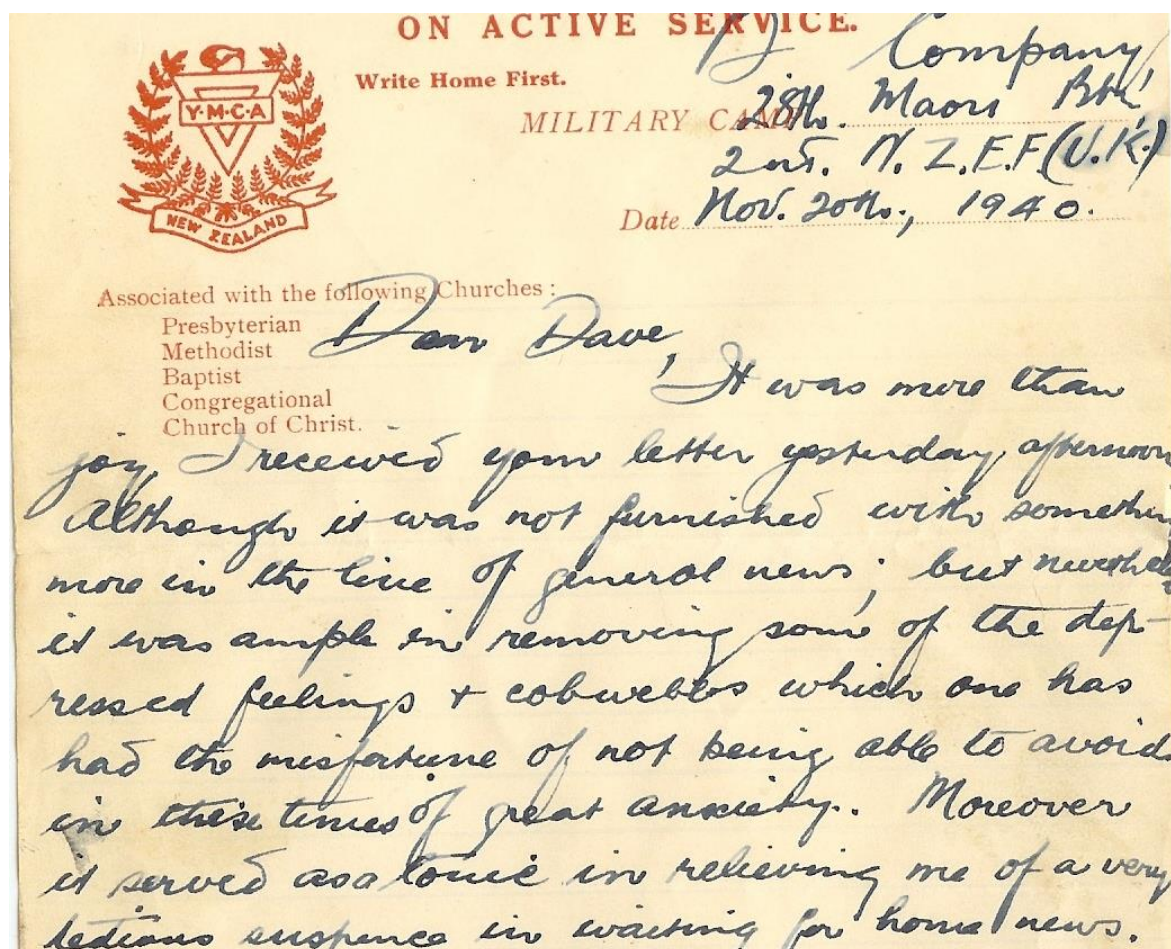 ON ACTIVE SERVICE.
Write Home First.
Y·M·C·A
NEW ZEALAND
D Company
MILITARY CAMP 28th. Maori Btn.
2nd. N.Z.E.F (U.K.)
Date Nov. 20th., 1940.
Associated with the following Churches:
Presbyterian
Methodist
Baptist
Congregational
Church of Christ.
Dear Dave,
It was more than
joy, I received your letter yesterday, afternoon
Although it was not furnished with somethin
more in the line of general news; but neverthele
it was ample in removing some of the dep-
ressed feelings + cobwebbs which one has
had the misfortune of not being able to avoid
in these times of great anxiety. Moreover
it served as a tonic in relieving me of a very
tedious suspence in waiting for home news.